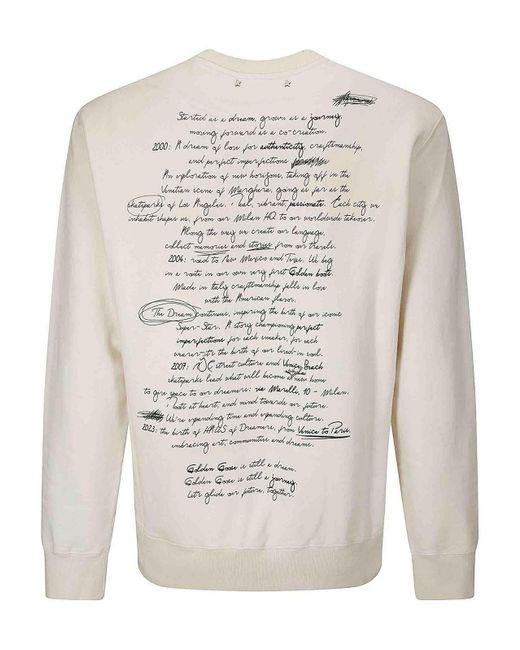 Started as a dream, grown as a journey
moving forward as a co-creation.
2000: A dream of love for authenticity, craftmanship,
and perfect imperfections
An exploration of new horizons, taking off in the
Venetian scene of Marghera, going as far as the
skateparks of Los Angeles. Real, vibrant, passionate. Each city we
inhabit shapes us, from our Milan HQ to our worldwide takeover.
Along the way we create our language,
collect memories and stories from our travels.
2004: road to New Mexico and Texas. We beg
in a route in our own very first Golden boots.
Made in Italy craftmanship fells in love
with the American flavor.
The Dream continues, inspiring the birth of our iconic
Super-Star. A story championing perfect
imperfections for each sneaker, for each
wearer-it's the birth of our lived-in soul.
2007: street culture and Venice Beach
skateparks lead what will become a new home
to give space to our dreamers: via Marsilli, 10 - Milan.
boots at heart, and mind towards our future.
We're expanding time and expanding culture.
2023: the birth of HAUS of Dreamers, from Venice to Paris,
embracing art, communities and dreams.
Golden Goose is still a dream.
Golden Goose is still a journey.
Let's glide our future, together.